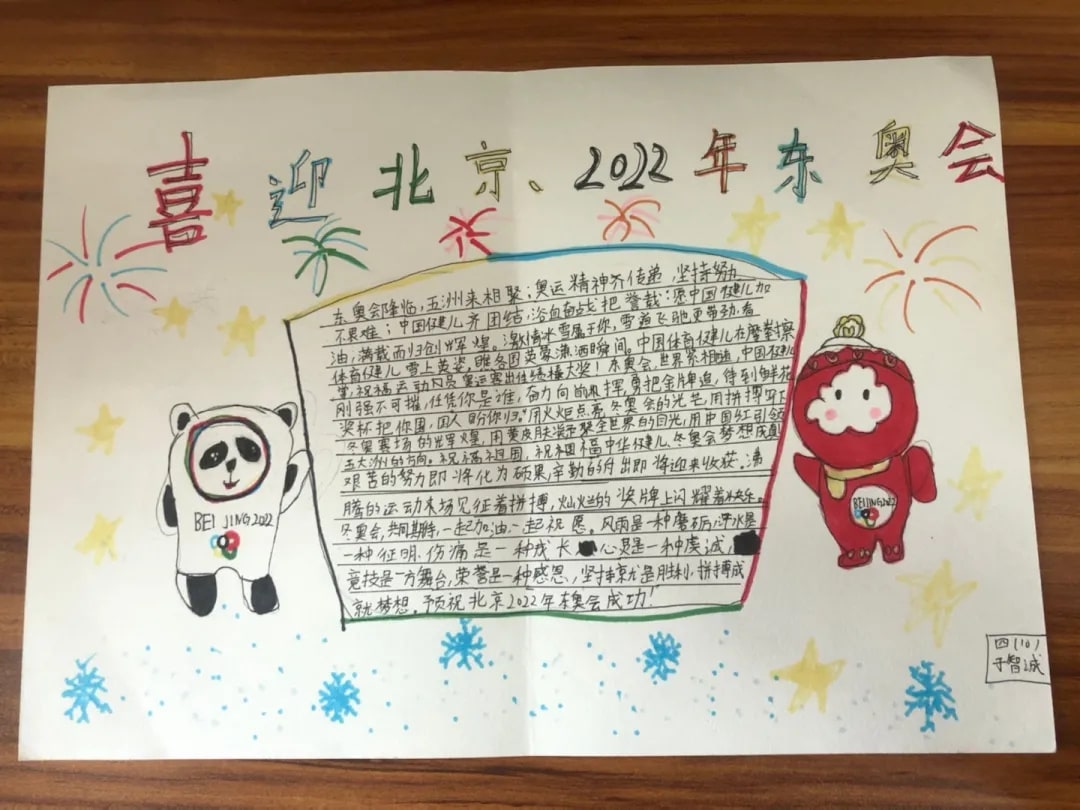 喜迎北京、2022年东奥会
东奥会降临,五洲来相聚;奥运精神齐传递,坚持努力
不畏难;中国健儿齐团结,浴血奋战把誉载;愿中国健儿加
油,满载而归创辉煌。激情冰雪属于你,雪道飞驰更带劲,看
体育健儿雪上英姿,瞧各国英豪潇洒瞬间。中国体育健儿在摩拳擦
掌,祝福运动员奥运赛出佳绩捧大奖!东奥会,世界紧相连,中国健儿
刚强不可摧,任凭你是谁,奋力向前挥,勇把金牌追,待到鲜花
奖杯把你围,国人盼你归。用火炬点亮冬奥会的光芒,用拼搏写下
冬奥赛场的辉煌,用黄皮肤凝聚全世界的目光,用中国红引领
五大洲的方向。祝福祖国,祝福中华健儿,冬奥会梦想成真
艰苦的努力即将化为硕果,辛勤的付出即将迎来收获。沸
腾的运动来场见征着拼搏,灿烂的奖牌上闪耀着快乐。
冬奥会,共同期待,一起加油,一起祝愿。风雨是一种磨砺,汗水是
一种征明,伤痛是一种成长,心灵是一种虔诚,
竞技是一方舞台,荣誉是一种感恩,坚持京尤是胜利,拼搏成
就梦想。预祝北京2022年东奥会成功!
BEIJING2022
BEIJING2022
四(10)
于智诚